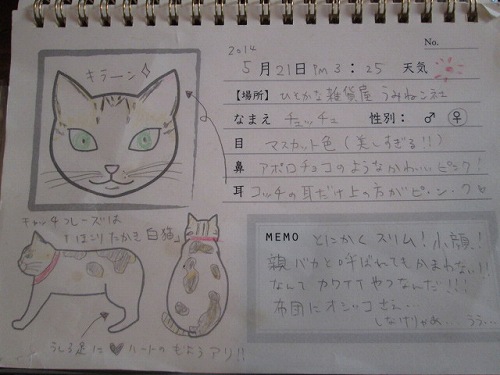 No.
2014
5月21日 PM 3：25 天気
【場所】 ひとかな雑貨屋 うみねこ社
なまえ チョッチュ 性別： ♂ ♀
目 マスカット色（美しすぎる!!）
鼻 アポロチョコのようなかわいいピンク！
耳 コッチの耳だけ上の方がピ・ン・ク
キラーン
キャッチフレーズは
「ほこりたかき白猫」
うしろ足に♥ハートのもようアリ!!
MEMO とにかくスリム！小顔！
親バカと呼ばれてもかまわない!!
なんてカワイイやつなんだ!!!
布団にオシッコさえ…
しなけりゃぁ… うぅ…